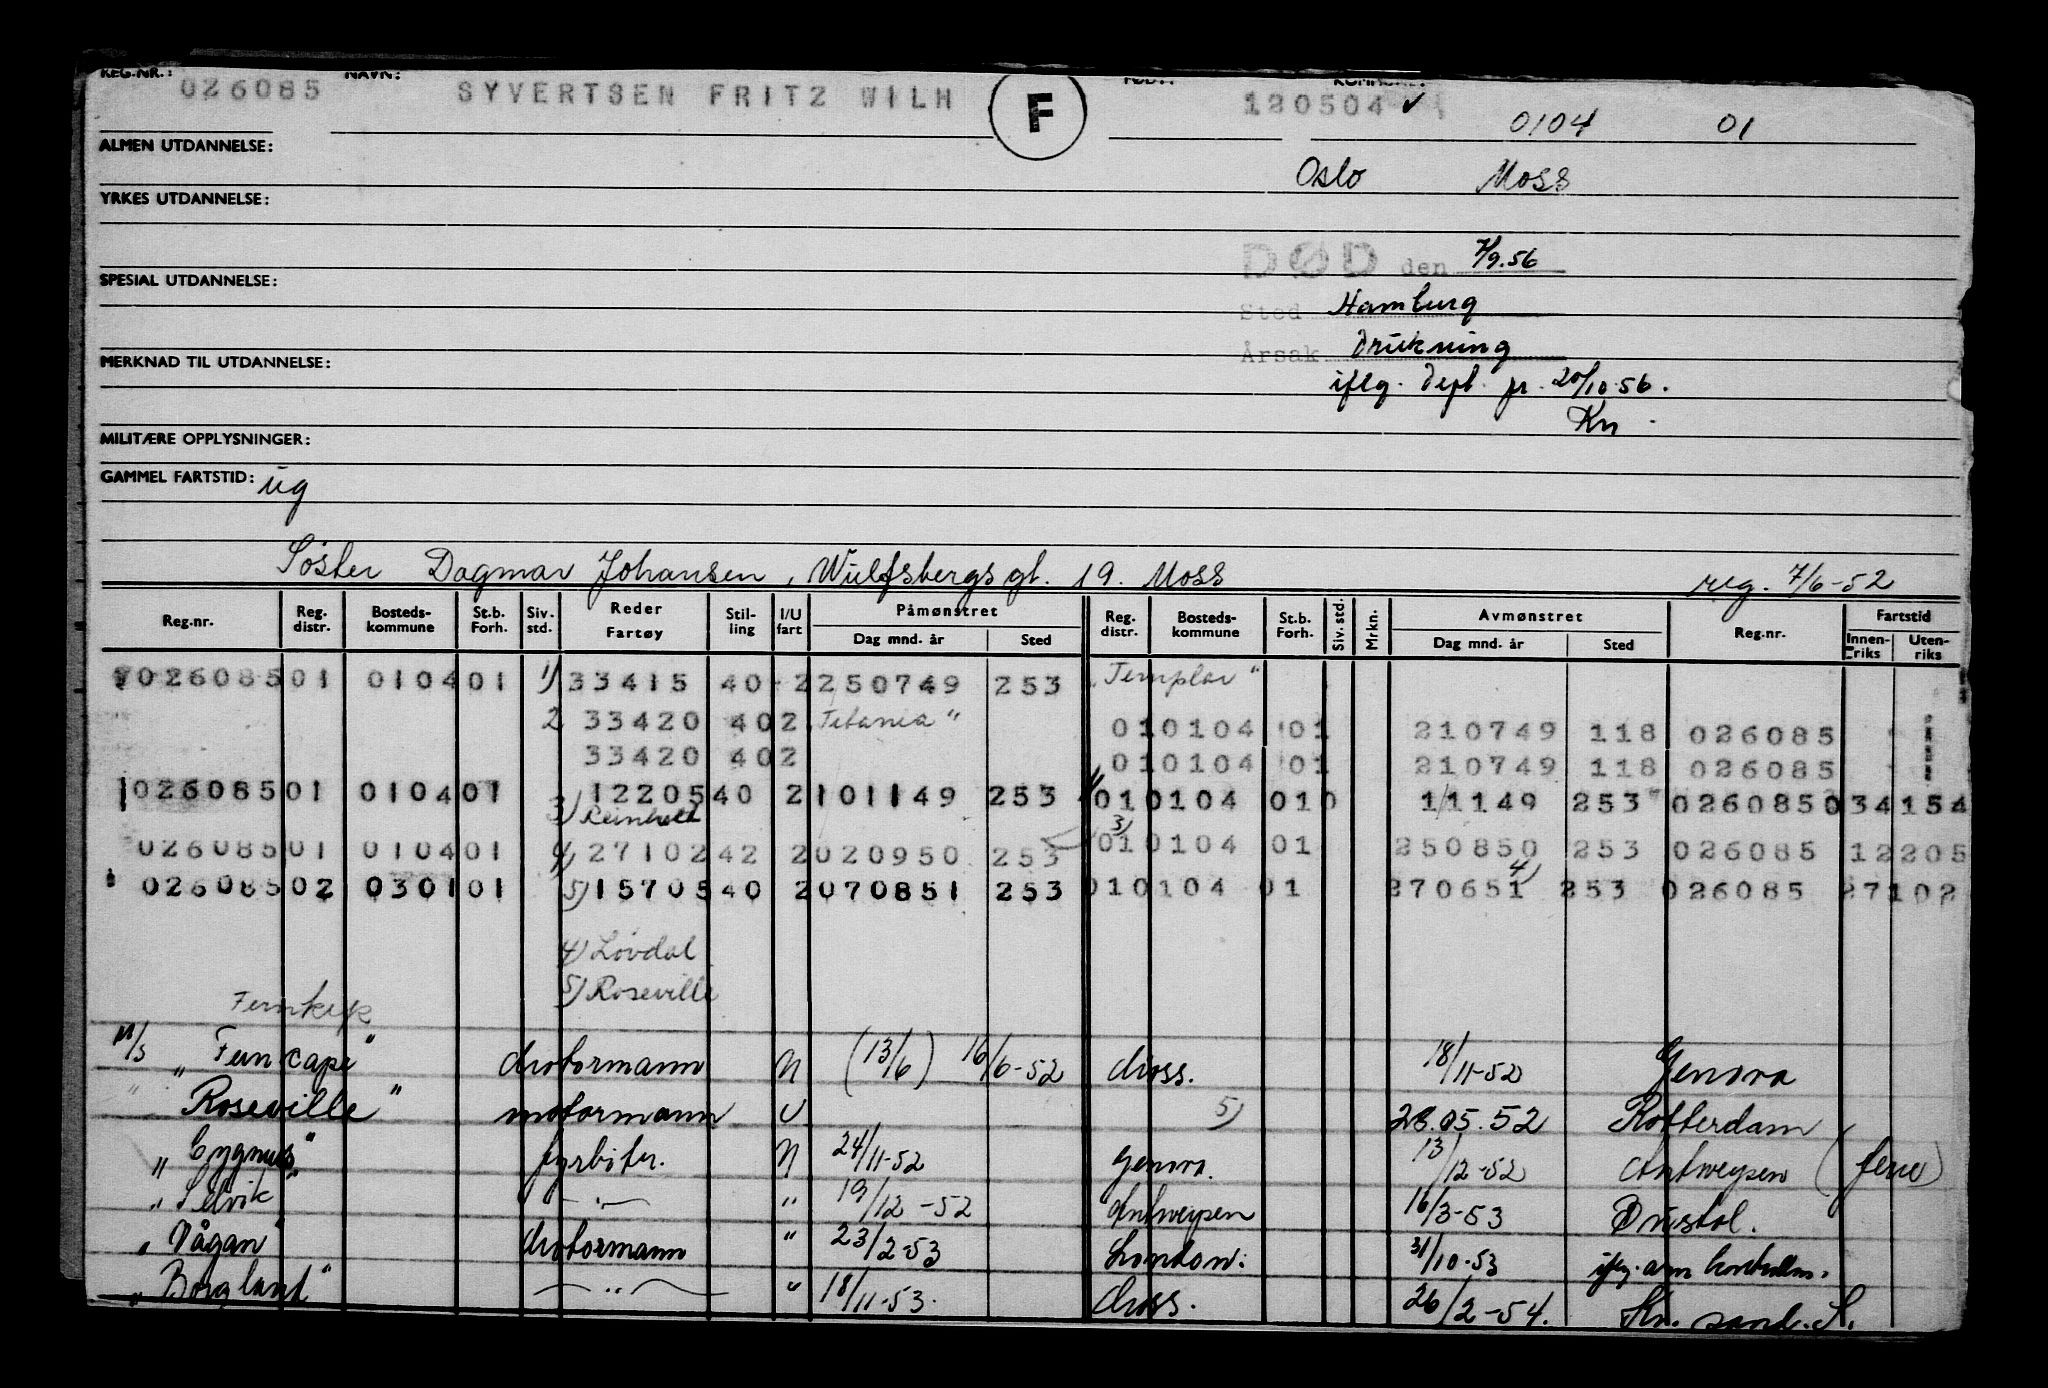 REG.NR.: 026085 NAVN: SYVERTSEN FRITZ WILH F FØDT: 120504 ✓ KOMMUNE: 0104 01
ALMEN UTDANNELSE:
Oslo Moss
YRKES UTDANNELSE:
DØD den 7/9.56
SPESIAL UTDANNELSE:
Sted Hamburg
Årsak Drukning
MERKNAD TIL UTDANNELSE:
iflg. Dept. pr. 20/10-56.
Kn.
MILITÆRE OPPLYSNINGER:
GAMMEL FARTSTID: ug
Søster Dagmar Johansen, Wulfsbergs gt. 19. Moss reg. 7/6-52
Reg.nr. Reg. distr. Bosteds-kommune St.b. Forh. Siv. std. Reder Fartøy Stil-ling I/U fart Påmønstret Dag mnd. år Sted Reg. distr. Bosteds-kommune St.b. Forh. Siv. std. Mrkn. Avmønstret Dag mnd. år Sted Reg.nr. Fartstid Innen-riks Uten-riks
026085 01 0104 01 1) 33415 40-2 250749 253 "Templar"
2 33420 402 Titania" 010104 01 210749 118 026085
33420 402 010104 01 210749 118 026085
026085 01 0104 01 12205 40 2 101149 253 010104 010 11149 253 026085 034154
3) Reinholt 3)
026085 01 0104 01 4) 27102 42 2 020950 253 010104 01 250850 253 026085 12205
026085 02 0301 01 5) 15705 40 2 070851 253 010104 01 270651 4) 253 026085 27102
4) Lovdal
5) Roseville
M/S "Ferncape" Motormann U (13/6) 16/6-52 Moss. 18/11-52 Genova
" Roseville" motormann U 5) 28.05.52 Rotterdam
" Cygnus" fyrbøter. U 24/11-52 Genova. 13/12-52 Antwerpen (ferie)
" Selvik - " - " 19/12-52 Antwerpen 16/3-53 Bristol.
" Vågan" Motormann " 23/2-53 London. 31/10-53 iflg. arm kontrollen.
" Borgland" - " - " 18/11-53. Moss. 26/2-54. Kr. sand. S.